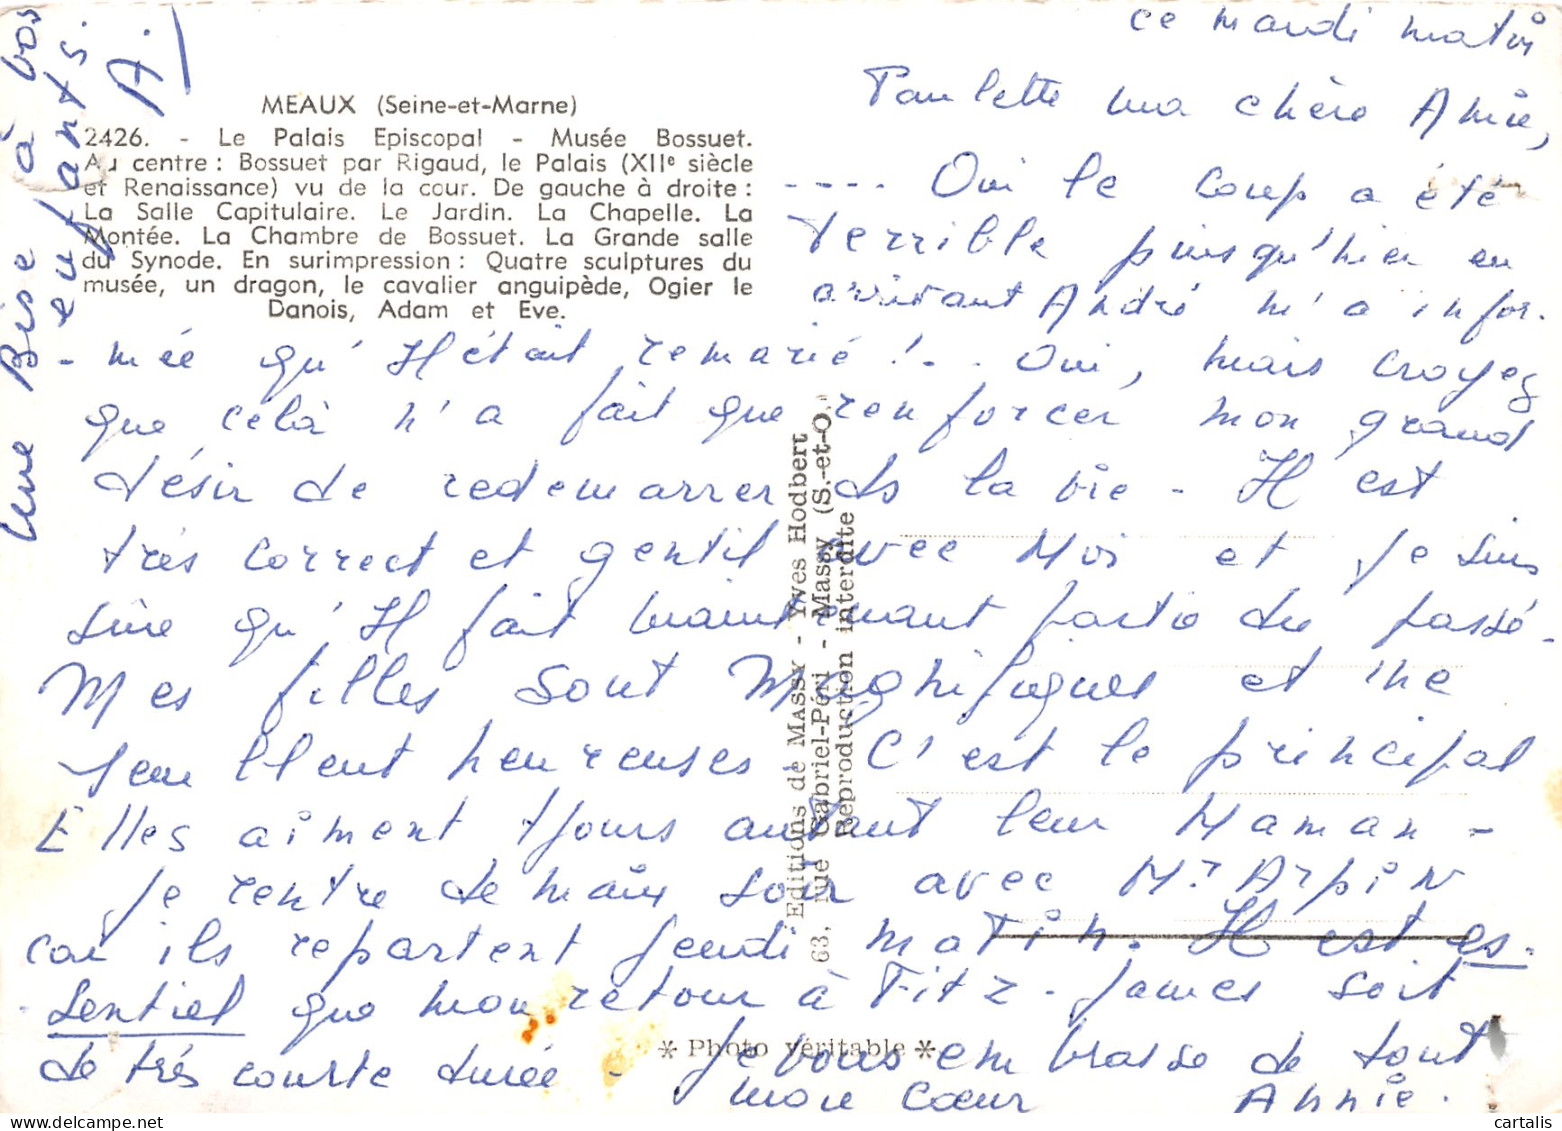 MEAUX (Seine-et-Marne)
2426. - Le Palais Episcopal - Musée Bossuet.
Au centre : Bossuet par Rigaud, le Palais (XIIe siècle
et Renaissance) vu de la cour. De gauche à droite :
La Salle Capitulaire. Le Jardin. La Chapelle. La
Montée. La Chambre de Bossuet. La Grande salle
du Synode. En surimpression : Quatre sculptures du
musée, un dragon, le cavalier anguipède, Ogier le
Danois, Adam et Eve.
ce mardi matin
Paulette ma chère Amie,
---- Oui le coup a été
terrible puisqu'hier en
arrivant André m'a infor-
-mée qu'Il était remarié !.. Oui, mais croyez
que celà n'a fait que renforcer mon grand
désir de redemarrer ds la vie - Il est
très correct et gentil avec Moi et je suis
sûre qu'Il fait maintenant partie du passé.
Mes filles sont Magnifiques et me
semblent heureuses - C'est le principal
Elles aiment tjours autant leur Maman -
Je rentre demain soir avec Mr ARPIN
car ils repartent jeudi matin. Il est es-
-sentiel que mon retour à Fitz-James soit
de très courte durée - Je vous embrasse de tout
mon cœur Annie.
Une Bise à vos
enfants.
A.
Editions de MASSY - Yves Hodbert
63, rue Gabriel-Péri - Massy (S.-et-O.)
Reproduction interdite
* Photo véritable *
www.cartalis.com